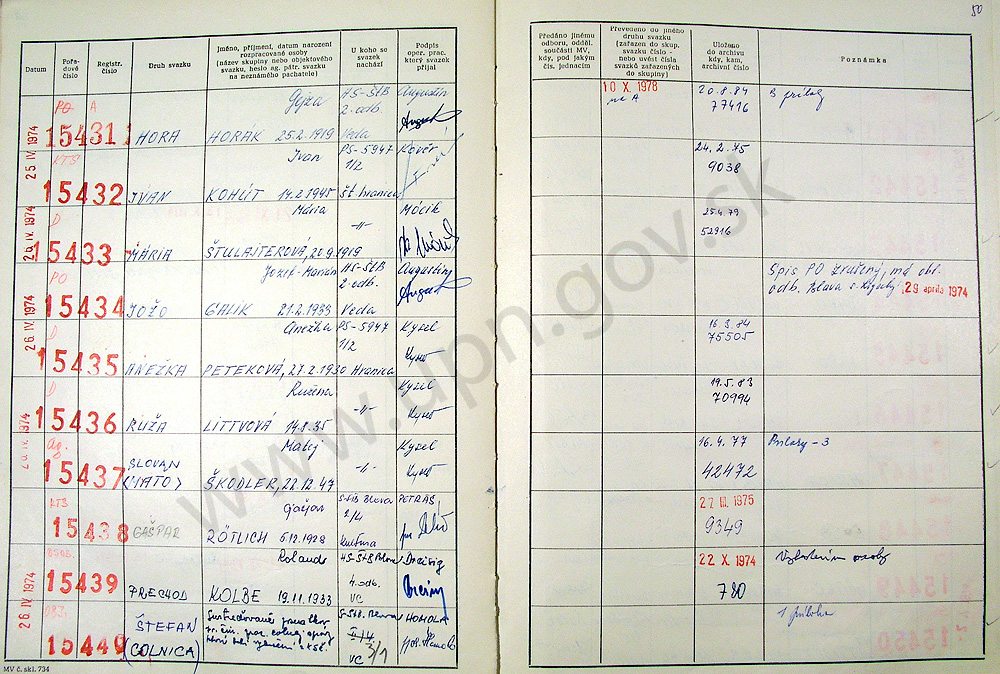 50
Datum
Pořa-
dové
číslo
Registr.
číslo
Druh svazku
Jméno, příjmení, datum narození
rozpracované osoby
(název skupiny nebo objektového
svazku, heslo ag. pátr. svazku
na neznámého pachatele)
U koho se
svazek
nachází
Podpis
oper. prac.
který svazek
přijal
Předáno jinému
odboru, odděl.
součásti MV,
kdy, pod jakým
čís. jednacím
Převedeno do jiného
druhu svazku
(zařazen do skup.
svazku číslo -
nebo uvést čísla
svazků zařazených
do skupiny)
Uloženo
do archivu
kdy, kam,
archivní číslo
Poznámka
25 IV. 1974
PO A
15431
HORA
Gejza
HORÁK 25.2.1919
HS-ŠtB
2.odb.
Veda
Augustin
10 X. 1978
na A
20.8.84
77416
3 prílohy
KTS
15432
IVAN
Ivan
KOHÚT 14.2.1945
PS-5947
1/2
Št. hranica
Kövér
24.2.75
9038
26 IV. 1974
D
15433
MÁRIA
Mária
ŠTULAJTEROVÁ, 20.9.1919
-"-
Mócik
25.4.79
52916
26 IV. 1974
PO
15434
JOŽO
Jozef-Marián
GALIK 21.2.1933
HS-ŠtB
2.odb.
Veda
Augustin
Spis PO zrušený, má obl.
odb. 29 apríla 1974
D
15435
ANEŽKA
Anežka
PETEKOVÁ, 27.2.1930
PS-5947
1/2
Hranica
Kysel
16.3.84
75505
26 IV. 1974
D
15436
RUŽA
Ružena
LITTVOVÁ 14.8.35
-"-
Kysel
19.5.83
70994
Ag.
15437
SLOVAN
(MATO)
Matej
ŠKODLER, 22.12.47
-"-
Kysel
16.4.77
42472
Prílohy - 3
KTS
15438
GAŠPAR
RÖTLICH 6.12.1928
2/4
Kultura
PETRÁŠ
27 III. 1975
9349
26 IV. 1974
15439
PRECHOD
Rolande
KOLBE 19.11.1933
4.odb.
VC
22 X 1974
780
osoby
15449
ŠTEFAN
(COLNICA)
3/1
VC
HOMOLA
1 príloha
MV č. skl. 734
www.upn.gov.sk